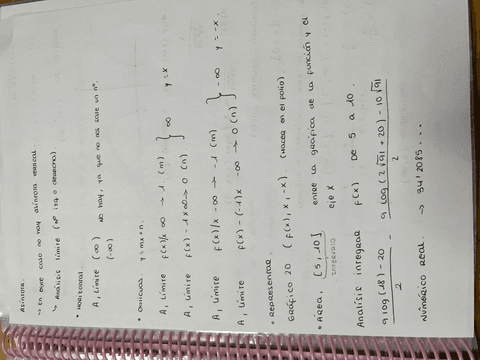 Asíntota.
→ En este caso no hay asíntota vertical
↳ Análisis límite (nº izq o derecha)
• HORIZONTAL
A, Límite (∞) No hay, ya que no nos sale un nº.
(-∞)
• OBLICUA y=mx+n.
A, Límite f(x)/x ∞ → 1 (m) } ∞ y=x
A, Límite f(x)-1x ∞ → 0 (n)
A, Límite f(x)/x -∞ → -1 (m) } -∞ y=-x.
A, Límite f(x)-(-1)x -∞ → 0 (n)
• REPRESENTAR.
GRÁFICO 2D (f(x), x, -x) (HACER en el folio).
• AREA [5, 10] entre la gráfica de la función y el
INTERVALO eje x
Analísis integrar f(x) DE 5 a 10.
9 log(18)-20 / 2 - 9 log(2√91+20)-10√91 / 2
Numérico real. → 34'2085...